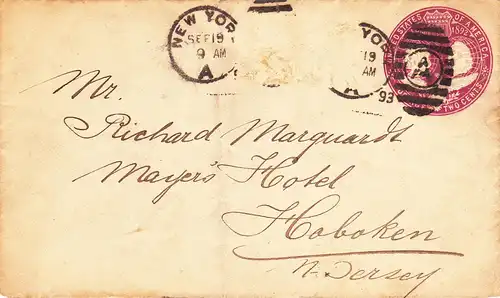 NEW YOR
SEP 19
9 AM
A
YO
19
AM
93
UNITED STATES OF AMERICA
TWO CENTS
Mr.
Richard Marquardt
Mayer's Hotel
Hoboken
N. Jersey